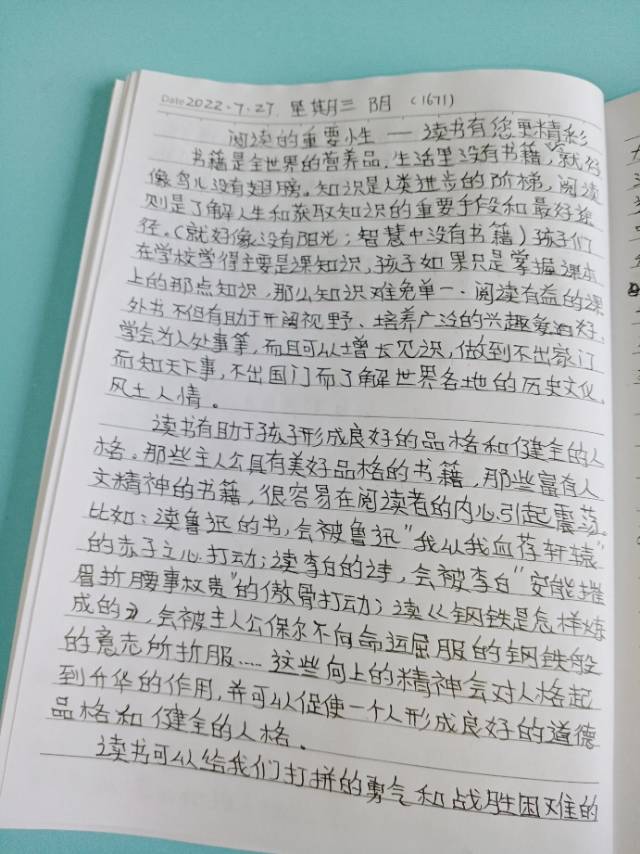 Date 2022.7.27 星期三 阴 (1671)
阅读的重要性 —— 读书有您更精彩
书籍是全世界的营养品,生活里没有书籍,就好
像鸟儿没有翅膀。知识是人类进步的阶梯,阅读
则是了解人生和获取知识的重要手段和最好途
径。(就好像没有阳光;智慧中没有书籍)孩子们
在学校学得主要是课知识,孩子如果只是掌握课本
上的那点知识,那么知识难免单一.阅读有益的课
外书不但有助于开阔视野、培养广泛的兴趣爱好,
学会为人处事等,而且可以增长见识,做到不出家门
而知天下事,不出国门而了解世界各地的历史文化、
风土人情。
读书有助于孩子形成良好的品格和健全的人
格。那些主人公具有美好品格的书籍,那些富有人
文精神的书籍,很容易在阅读者的内心引起震荡。
比如:读鲁迅的书,会被鲁迅"我以我血荐轩辕"
的赤子之心打动;读李白的诗,会被李白"安能摧
眉折腰事权贵"的傲骨打动;读《钢铁是怎样炼
成的》,会被主人公保尔不向命运屈服的钢铁般
的意志所折服……这些向上的精神会对人格起
到升华的作用,并可以促使一个人形成良好的道德
品格和健全的人格。
读书可以给我们打拼的勇气和战胜困难的